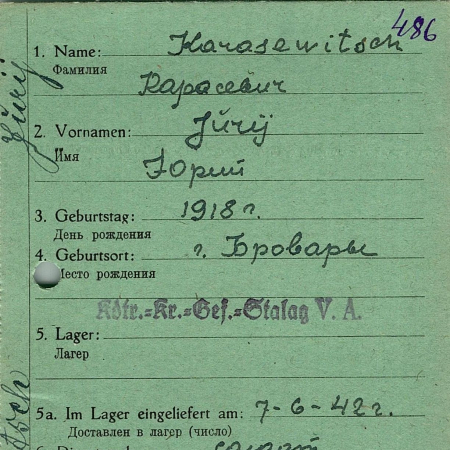 486
1. Name: Karasewitsch
Фамилия
Карасевич
2. Vornamen: Jŭrij
Имя
Юрий
3. Geburtstag: 1918 г.
День рождения
4. Geburtsort: г. Бровары
Место рождения
Kdtr.=Kr.=Gef.=Stalag V. A.
5. Lager:
Лагерь
5a. Im Lager eingeliefert am: 7-6-42 г.
Доставлен в лагерь (число)
Jŭrij